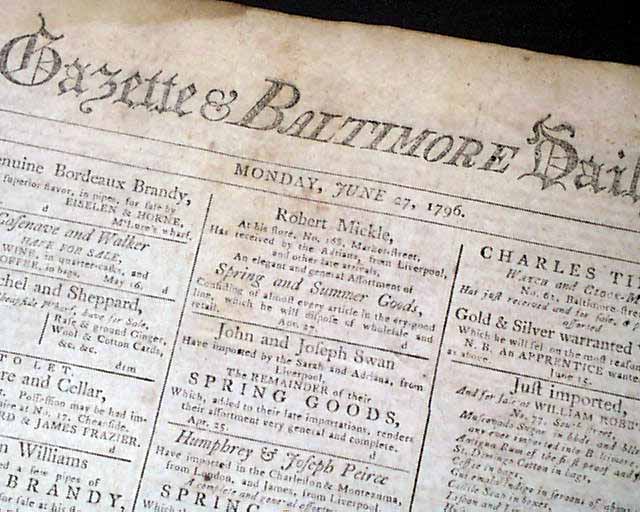 Gazette & BALTIMORE Dail
MONDAY, JUNE 27, 1796.
enuine Bordeaux Brandy,
superior flavor, in pipes, for sale by
d EISELEN & HORNE,
M'Lure's wharf.
Cosenave and Walker
HAVE FOR SALE,
WINE, in quarter-casks, and
COFFEE, in bags. May 16. d
chel and Sheppard,
Cheapside, have for Sale,
Rase & ground Ginger,
Wool & Cotton Cards,
&c. &c.
dtm
TO LET,
re and Cellar,
Possession may be had im-
at No. 17, Cheapside.
RD & JAMES FRAZIER.
n Williams
a few pipes of
BRANDY,
for sale at his
Robert Mickle,
At his store, No. 168, Market-street,
Has received by the Adriana, from Liverpool,
and other late arrivals,
An elegant and general Assortment of
Spring and Summer Goods,
Consisting of almost every article in the dry-good
line, which he will dispose of wholesale and
retail. Apr. 27. d
John and Joseph Swan
Have imported by the Sarah and Adriana, from
Liverpool,
The REMAINDER of their
SPRING GOODS,
Which, added to their late importations, renders
their assortment very general and complete.
Apr. 25. d
Humphrey & Joseph Peirce
Have imported in the Charleston & Montezuma,
from London, and James, from Liverpool,
A complete and general assortment
SPRING
CHARLES TI
WATCH AND CLOCK-M
No. 61, Baltimore-stre
Has just received and for sale, a
assorted
Gold & Silver warranted
Which he will sell on the most reason
N. B. An APPRENTICE wante
as above. June 15.
Just imported,
And for sale at WILLIAM ROB
No. 77, South
Muscovado Sugar in hhds. and bbls.
as ever imported into B
Antigua Rum of the first proof and
St. Domingo Cotton in bags,
Coffee in bags,
Guatemala Indigo in seroons of
Castile Soap in boxes,
Lisbon and